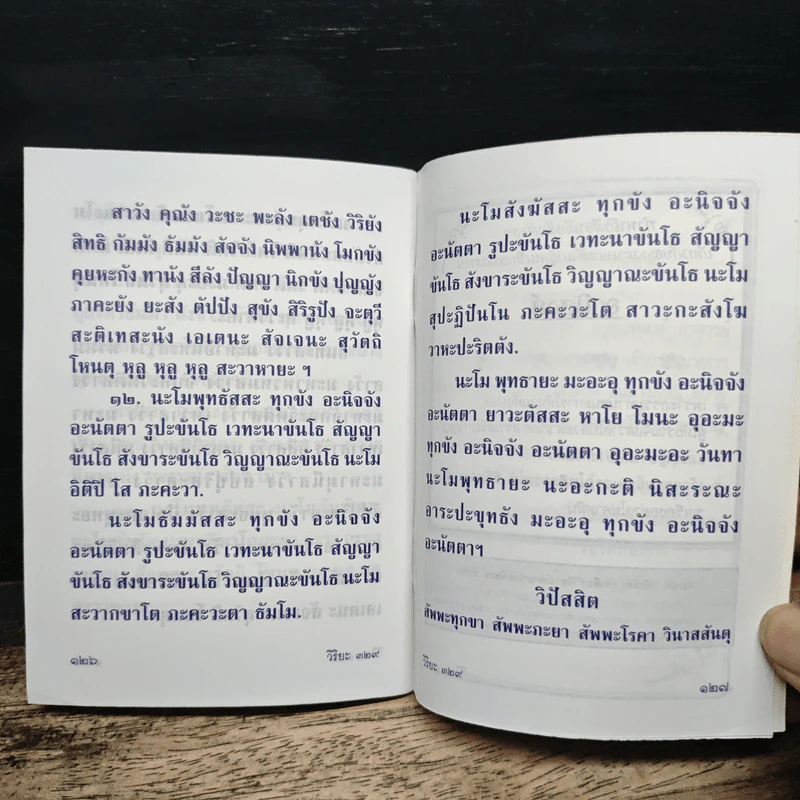 สาวัง คุณัง วะชะ พะลัง เตชัง วิริยัง
สิทธิ กัมมัง ธัมมัง สัจจัง นิพพานัง โมกขัง
คุยหะกัง ทานัง สีลัง ปัญญา นิกขัง ปุญญัง
ภาคะยัง ยะสัง ตัปปัง สุขัง สิริรูปัง จะตุวี
สะติเทสะนัง เอเตนะ สัจเจนะ สุวัตถิ
โหนตุ หุลู หุลู หุลู สะวาหายะ ฯ
๑๒. นะโมพุทธัสสะ ทุกขัง อะนิจจัง
อะนัตตา รูปะขันโธ เวทะนาขันโธ สัญญา
ขันโธ สังขาระขันโธ วิญญาณะขันโธ นะโม
อิติปิ โส ภะคะวา.
นะโมธัมมัสสะ ทุกขัง อะนิจจัง
อะนัตตา รูปะขันโธ เวทะนาขันโธ สัญญา
ขันโธ สังขาระขันโธ วิญญาณะขันโธ นะโม
สะวากขาโต ภะคะวะตา ธัมโม.
๑๒๖ วิริยะ ๓๒๙
นะโมสังฆัสสะ ทุกขัง อะนิจจัง
อะนัตตา รูปะขันโธ เวทะนาขันโธ สัญญา
ขันโธ สังขาระขันโธ วิญญาณะขันโธ นะโม
สุปะฏิปันโน ภะคะวะโต สาวะกะสังโฆ
วาหะปะริตตัง.
นะโม พุทธายะ มะอะอุ ทุกขัง อะนิจจัง
อะนัตตา ยาวะตัสสะ หาโย โมนะ อุอะมะ
ทุกขัง อะนิจจัง อะนัตตา อุอะมะอะ วันทา
นะโมพุทธายะ นะอะกะติ นิสะระณะ
อาระปะขุทธัง มะอะอุ ทุกขัง อะนิจจัง
อะนัตตาฯ
วิปัสสิต
สัพพะทุกขา สัพพะภะยา สัพพะโรคา วินาสสันตุ
วิริยะ ๓๒๙ ๑๒๗